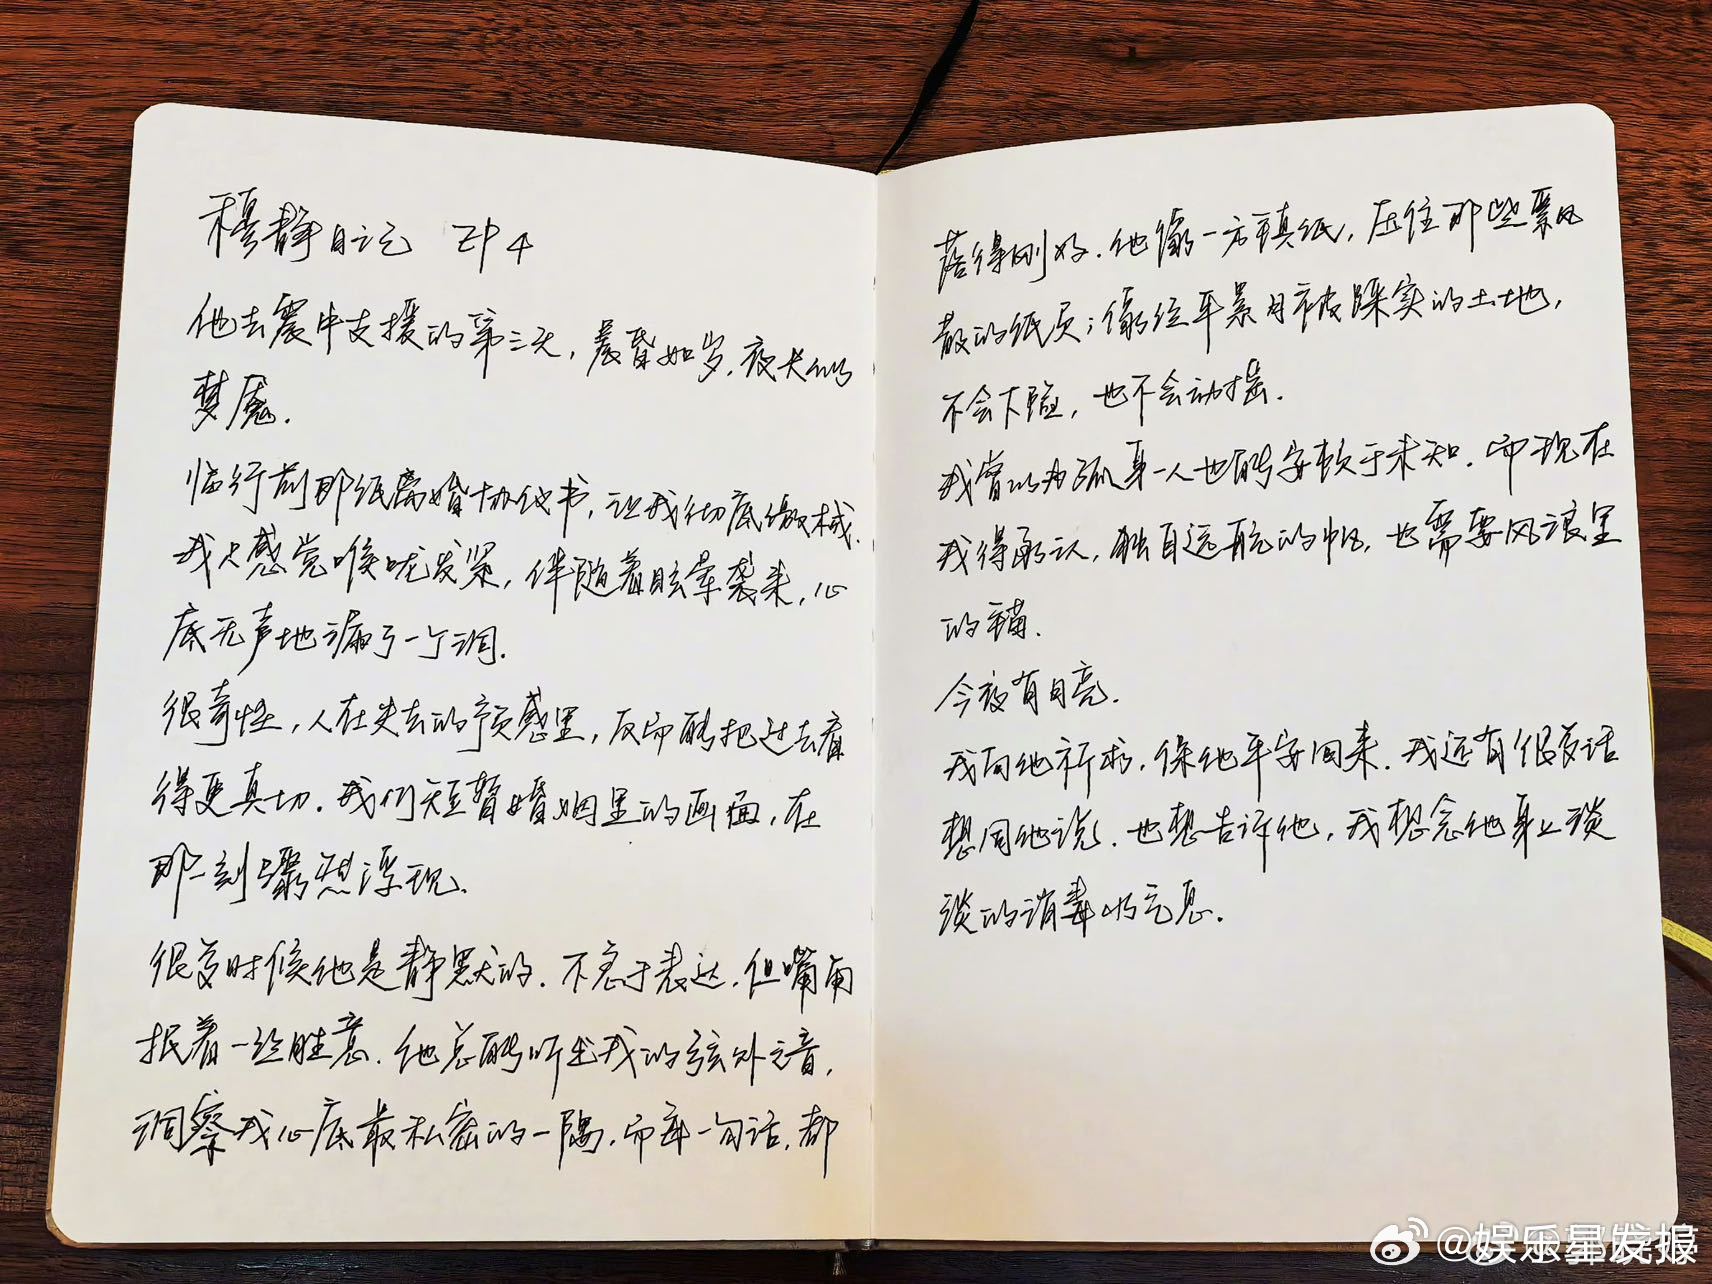 穆静日记 EP4
他去震中支援的第三天，晨昏如岁，夜长的
梦魇.
临行前那纸离婚协议书，让我彻底缴械.
我只感觉喉咙发紧，伴随着眩晕袭来，心
底无声地漏了一个洞.
很奇怪，人在失去的预感里，反而能把过去看
得更真切. 我们短暂婚姻里的画面，在
那一刻骤然浮现.
很多时候他是静默的. 不急于表达，但嘴角
抿着一丝胜意. 他总能听出我的弦外之音，
洞察我心底最私密的一隅，而每一句话，都
落得刚好. 他像一方镇纸，压住那些飘风
散的纸页；像经年累月被踩实的土地，
不会下陷，也不会动摇.
我曾以为孤身一人也能安放于未知. 而现在
我得承认，独自远航的帆，也需要风浪里
的锚.
今夜有月亮.
我向他祈求，保他平安回来. 我还有很多话
想同他说. 也想告诉他，我想念他身上淡
淡的消毒水气息.
@娱乐星发报